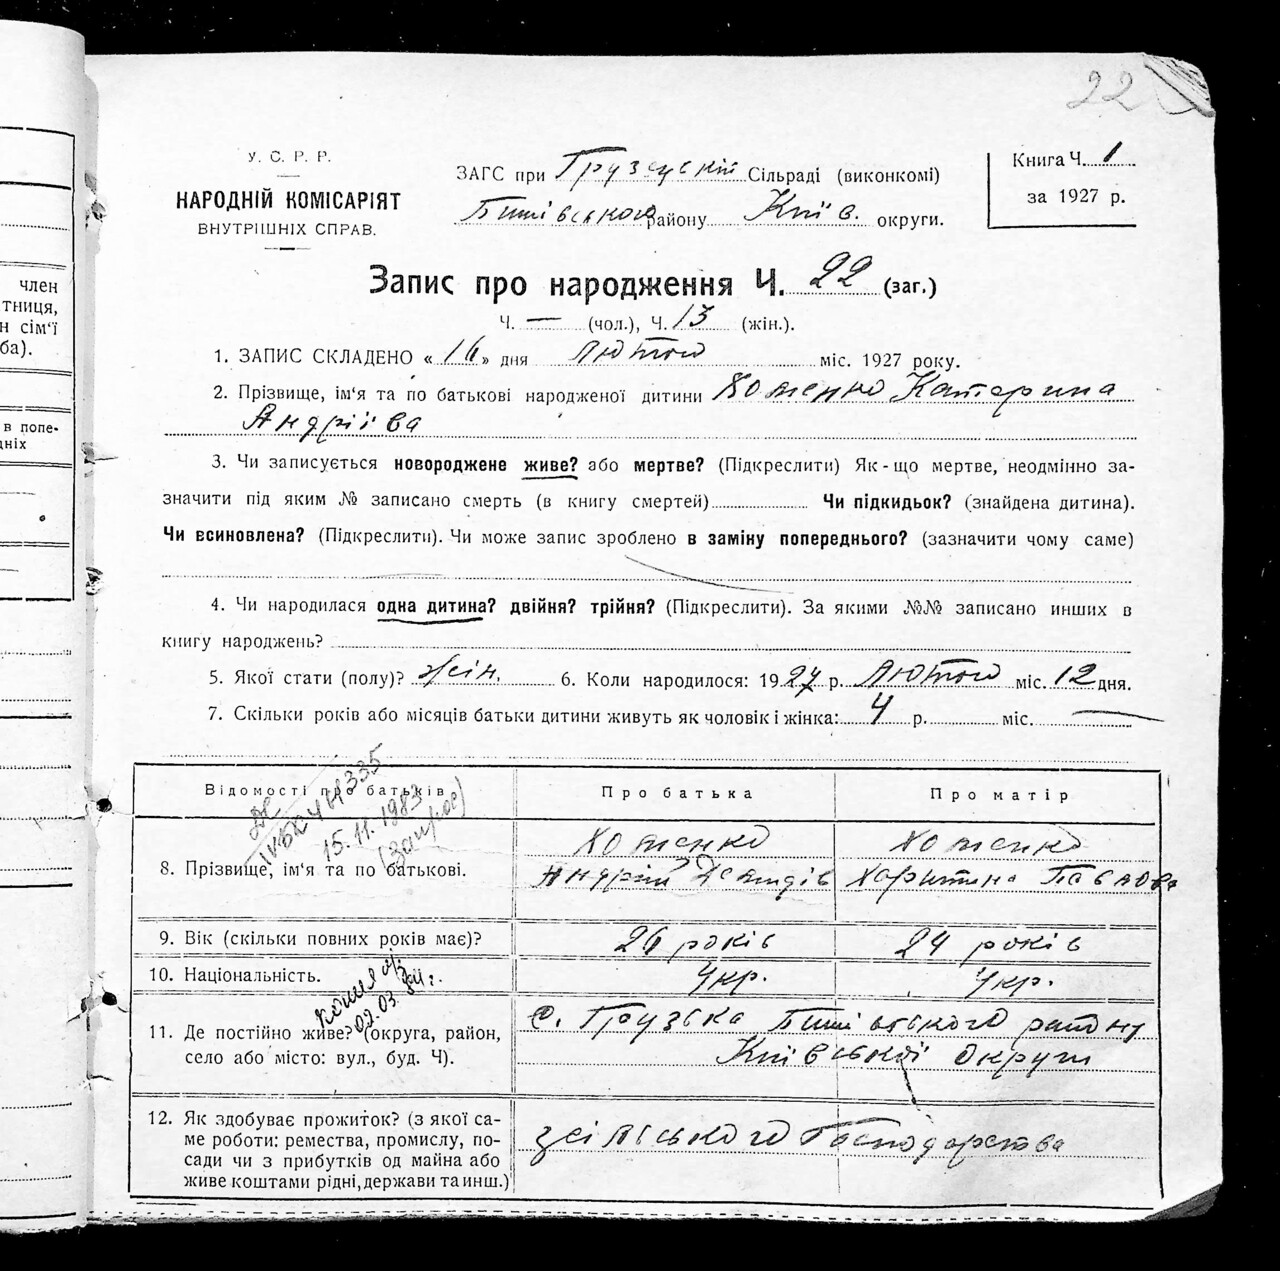 22
член
тниця,
н сім'ї
ба).
в попе-
дніх
У. С. Р. Р.
НАРОДНІЙ КОМІСАРІЯТ
ВНУТРІШНІХ СПРАВ.
ЗАГС при Грузській Сільраді (виконкомі)
Бишівського району Київ. округи.
Книга Ч. 1
за 1927 р.
Запис про народження Ч. 22 (заг.)
Ч. — (чол.), Ч. 13 (жін.).
1. ЗАПИС СКЛАДЕНО « 16 » дня Лютого міс. 1927 року.
2. Прізвище, ім'я та по батькові народженої дитини Хоменко Катерина
Андріїва
3. Чи записується новороджене живе? або мертве? (Підкреслити) Як-що мертве, неодмінно за-
значити під яким № записано смерть (в книгу смертей) Чи підкидьок? (знайдена дитина).
Чи всиновлена? (Підкреслити). Чи може запис зроблено в заміну попереднього? (зазначити чому саме)
4. Чи народилася одна дитина? двійня? трійня? (Підкреслити). За якими №№ записано инших в
книгу народжень?
5. Якої стати (полу)? жін. 6. Коли народилося: 1927 р. Лютого міс. 12 дня.
7. Скільки років або місяців батьки дитини живуть як чоловік і жінка: 4 р. міс. —
Відомості про батьків
Про батька
Про матір
335
15.11.1983
(запрос)
8. Прізвище, ім'я та по батькові.
Хоменко
Андрій
Хоменко
Харитина Павлова
9. Вік (скільки повних років має)?
26 років
24 років
10. Національність.
Укр.
Укр.
02.03.84г.
11. Де постійно живе? (округа, район,
село або місто: вул., буд. Ч).
с. Грузька Бишівського району
Київської округи
12. Як здобуває прожиток? (з якої са-
ме роботи: ремества, промислу, по-
сади чи з прибутків од майна або
живе коштами рідні, держави та инш.)
з сільського Господарства